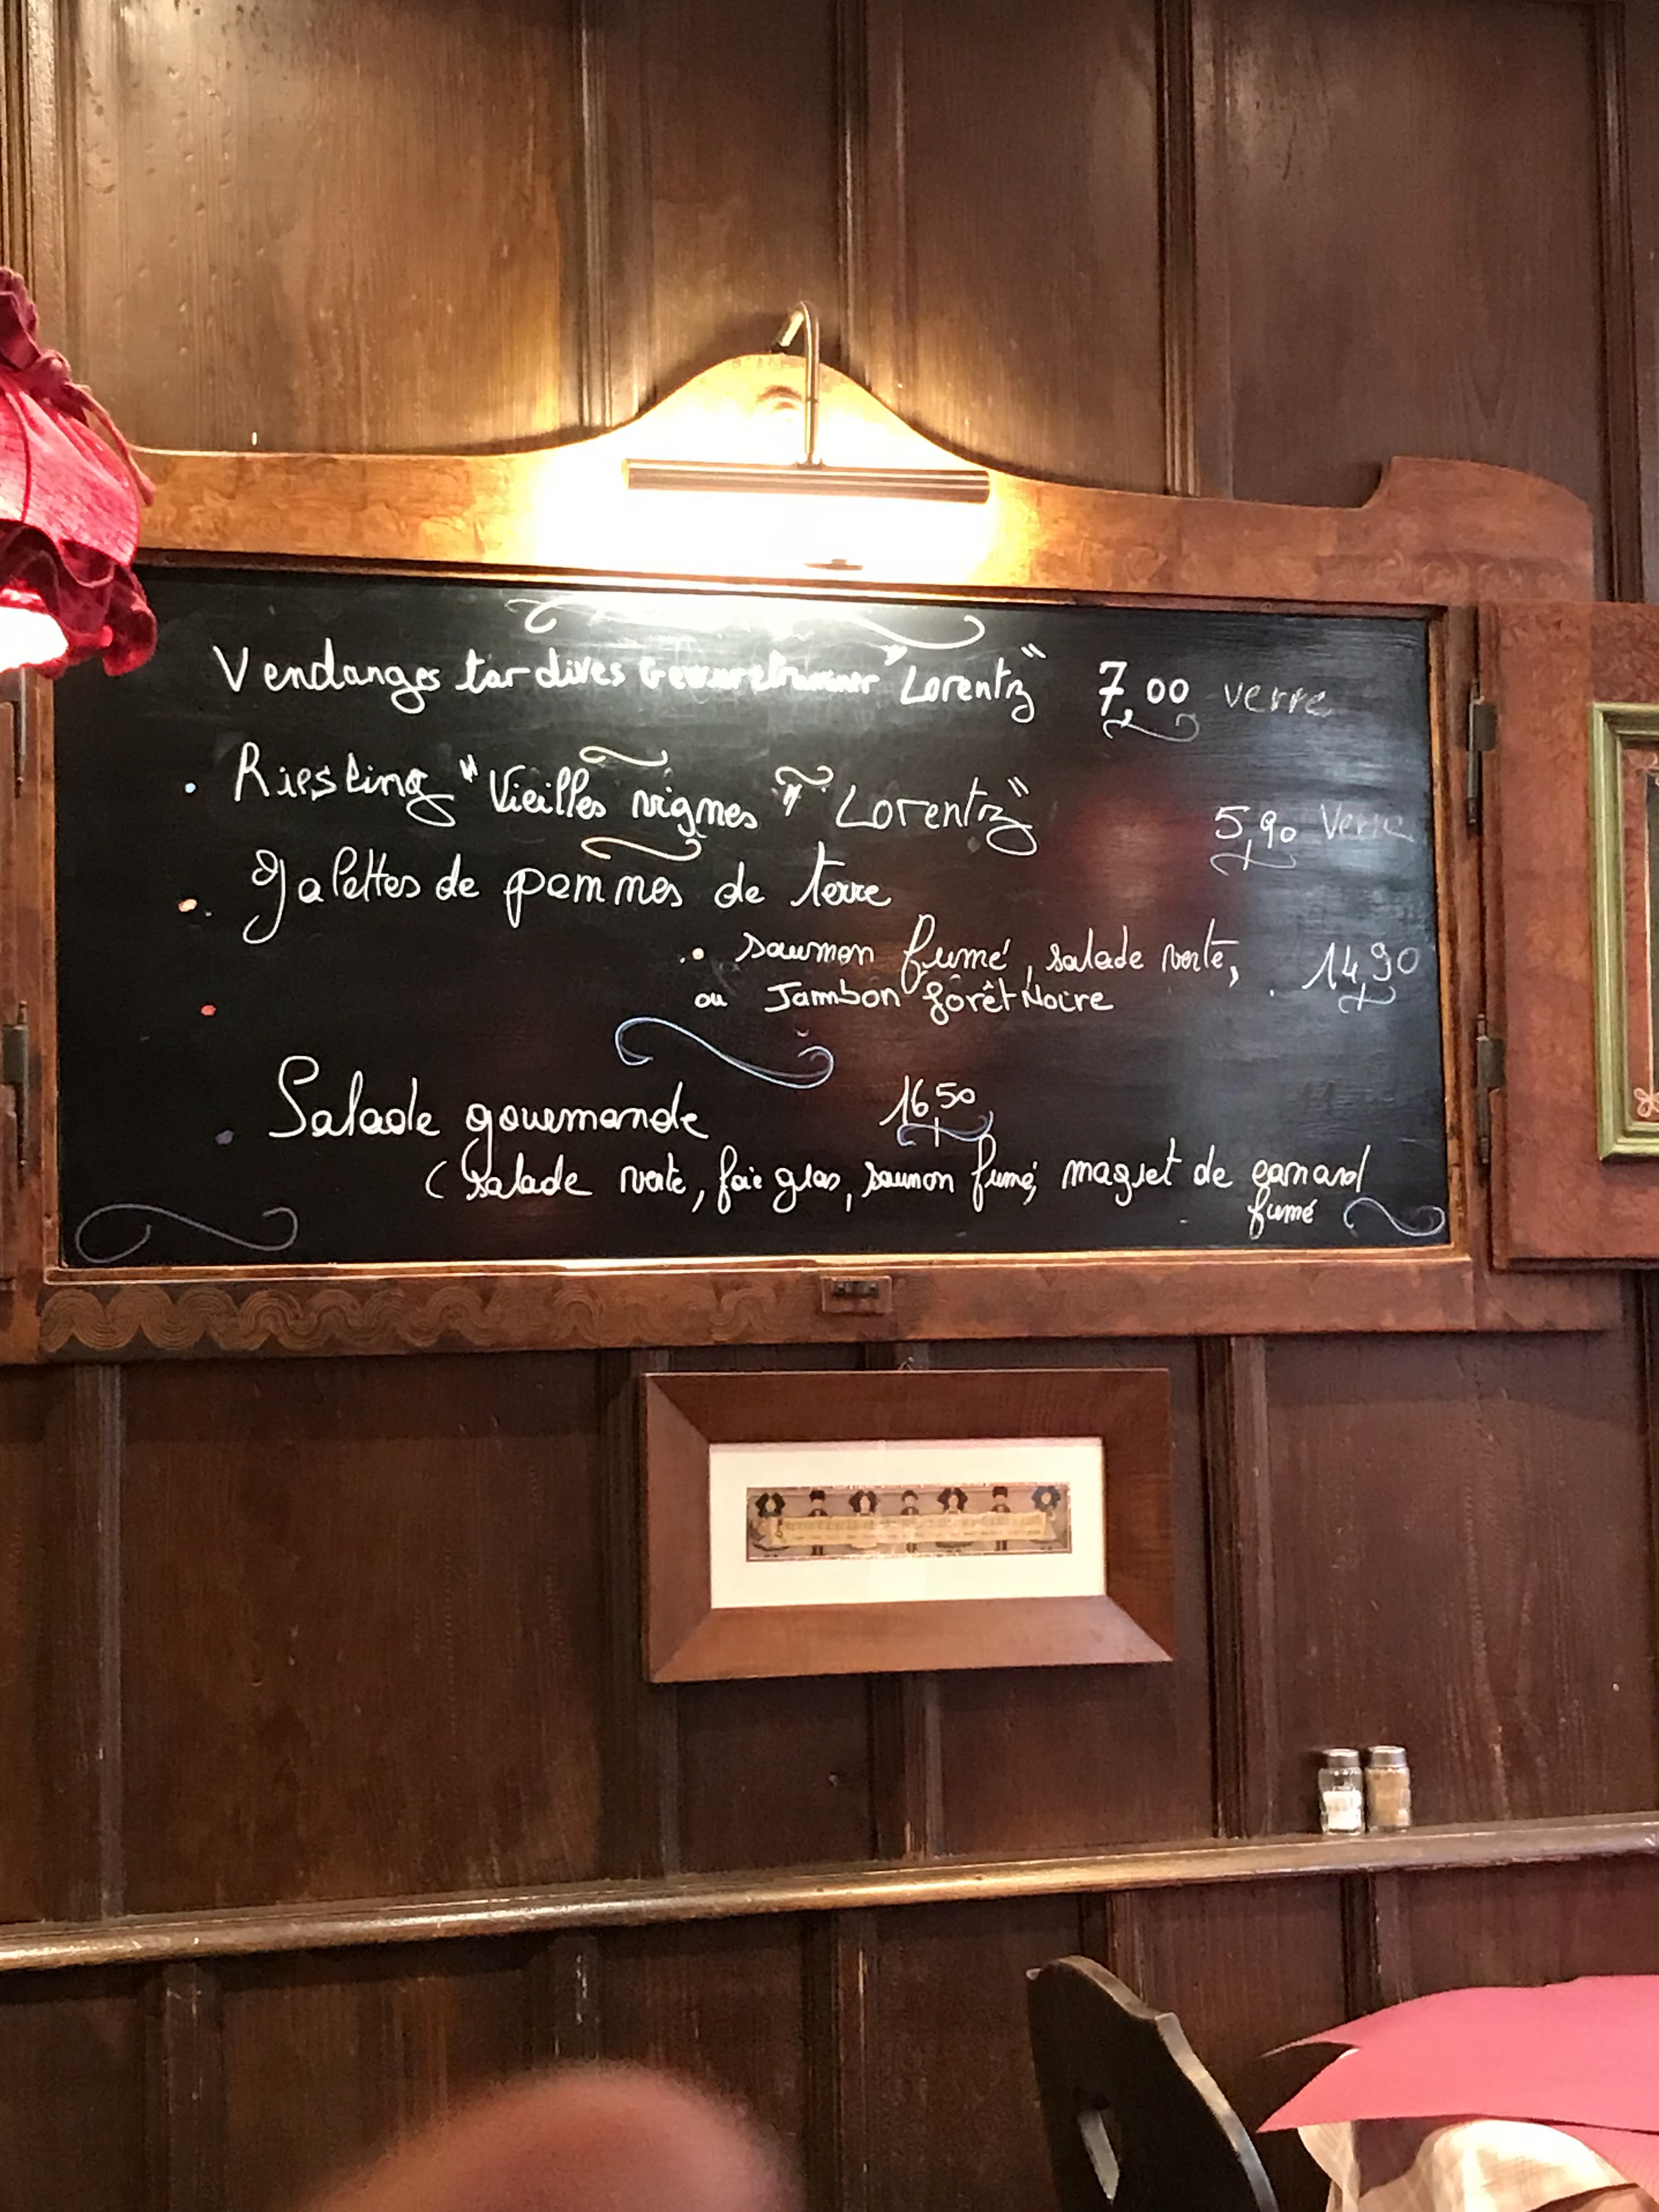 Vendanges tardives Gewurztraminer "Lorentz" 7,00 verre
• Riesling "Vieilles vignes" "Lorentz" 5,90 Verre
galettes de pommes de terre
• saumon fumé, salade verte, 14,90
ou Jambon forêt Noire
Salade gourmande 16,50
(salade verte, foie gras, saumon fumé, magret de canard
fumé